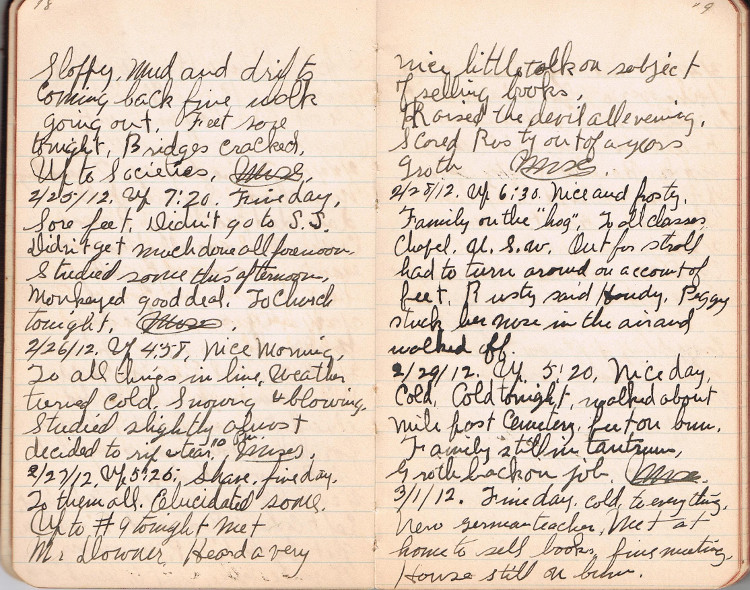 18
Sloppy, Mud and drifts
Coming back five walk
going out. Feet sore
tonight, Bridges cracked.
Up to Societies,
2/25/12. Up 7:20. Fine day,
Sore feet, Didn't go to S.S.
Didn't get much done all forenoon.
Studied some this afternoon.
Monkeyed good deal, To Church
tonight.
2/26/12. Up 4:58, Nice Morning,
To all things in line, Weather
turned cold. Snowing & blowing.
Studied slightly almost
decided to rip & tear. 10 P.M.
2/27/12, Up 5:25, Shave, fine day.
To them all. Elucidated some.
Up to #9 tonight met
Mr Downer, Heard a very
nice little talk on subject
of selling books,
Raised the devil all evening.
Scored Rusty out of a years
Groth
2/28/12. Up 6:30. Nice and frosty.
Family on the "hog", To all classes
Chapel. U.S.W. Out for stroll
had to turn around on account of
feet. Rusty said Howdy. Peggy
stuck her nose in the air and
walked off.
2/29/12. Up 5:20, Nice day,
Cold, Cold tonight, walked about
mile past Cemetery, feet on bum.
Family still in tantrum,
Groth back on job.
3/1/12. Fine day, cold, to everything,
New german teacher, Meet at
home to sell books, fine meeting.
House still on bum.